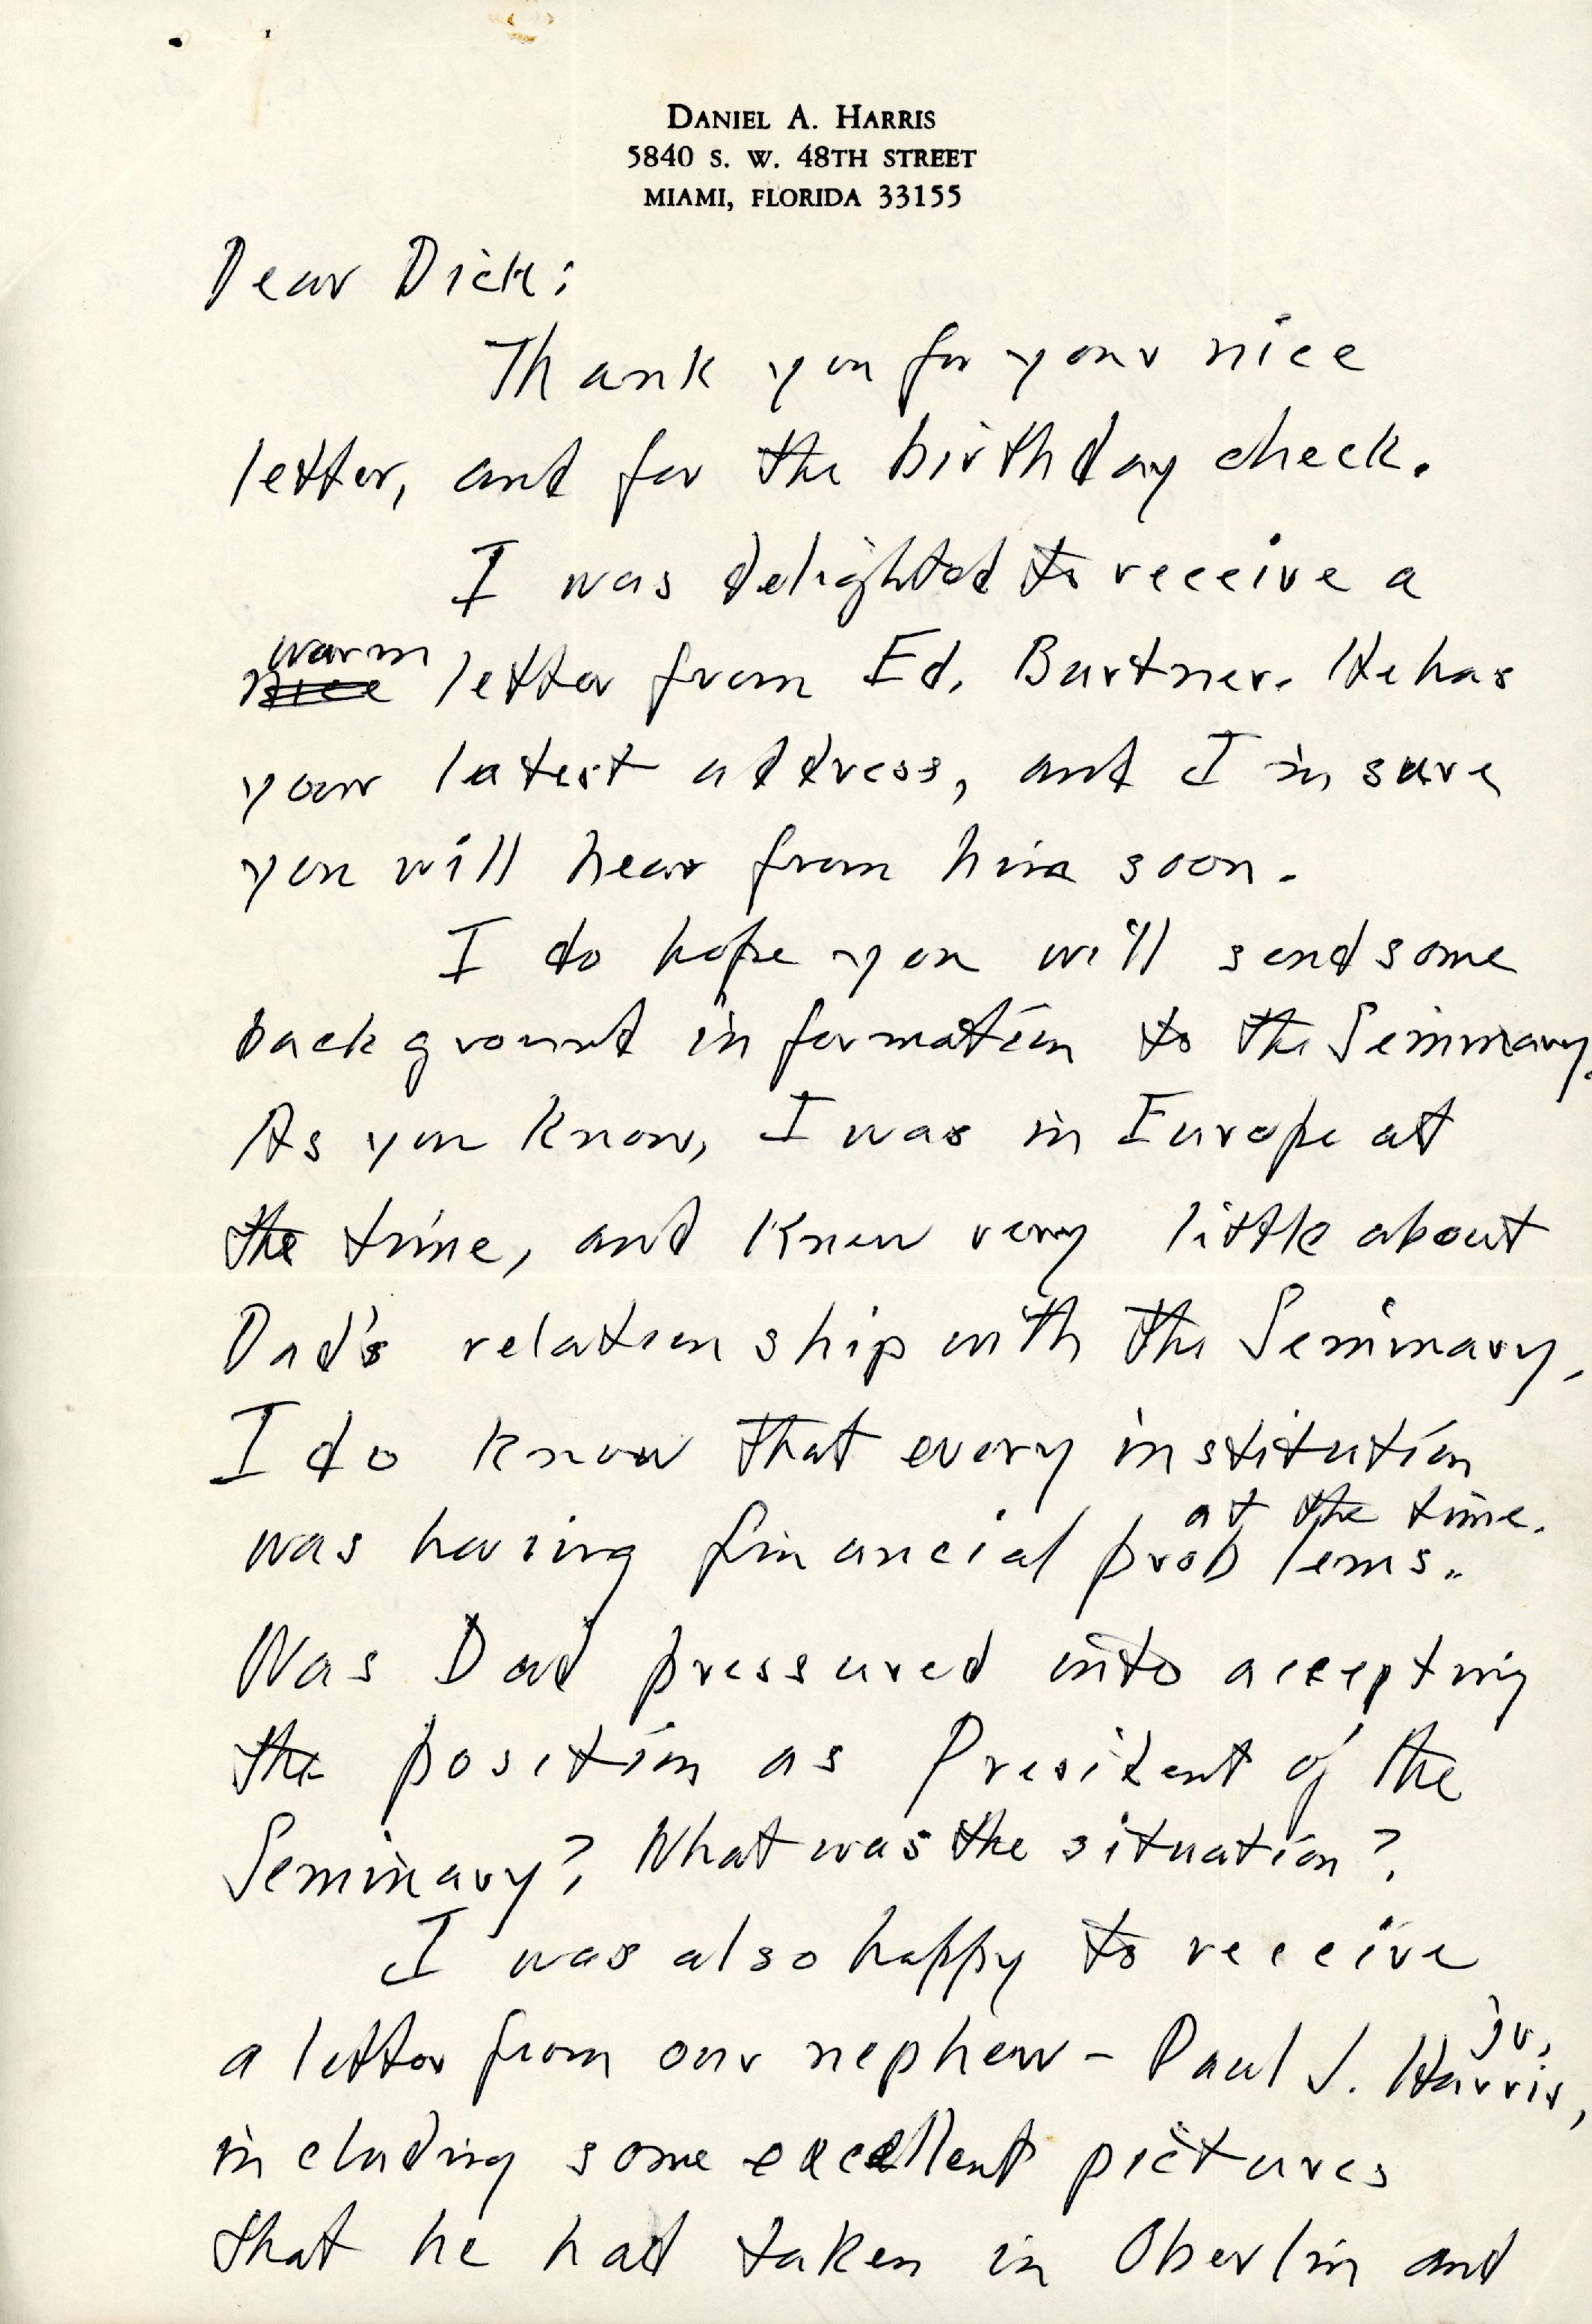 DANIEL A. HARRIS
5840 S. W. 48TH STREET
MIAMI, FLORIDA 33155
Dear Dick:
Thank you for your nice
letter, and for the birthday check.
I was delighted to receive a
warm
nice letter from Ed. Burtner. He has
your latest address, and I'm sure
you will hear from him soon.
I do hope you will send some
background information to the Seminary.
As you know, I was in Europe at
the time, and knew very little about
Dad's relationship with the Seminary.
I do know that every institution
at the time.
was having financial problems.
Was Dad pressured into accepting
the position as President of the
Seminary? What was the situation?
I was also happy to receive
a letter from our nephew - Paul J. Harris, jr.
including some excellent pictures
that he had taken in Oberlin and